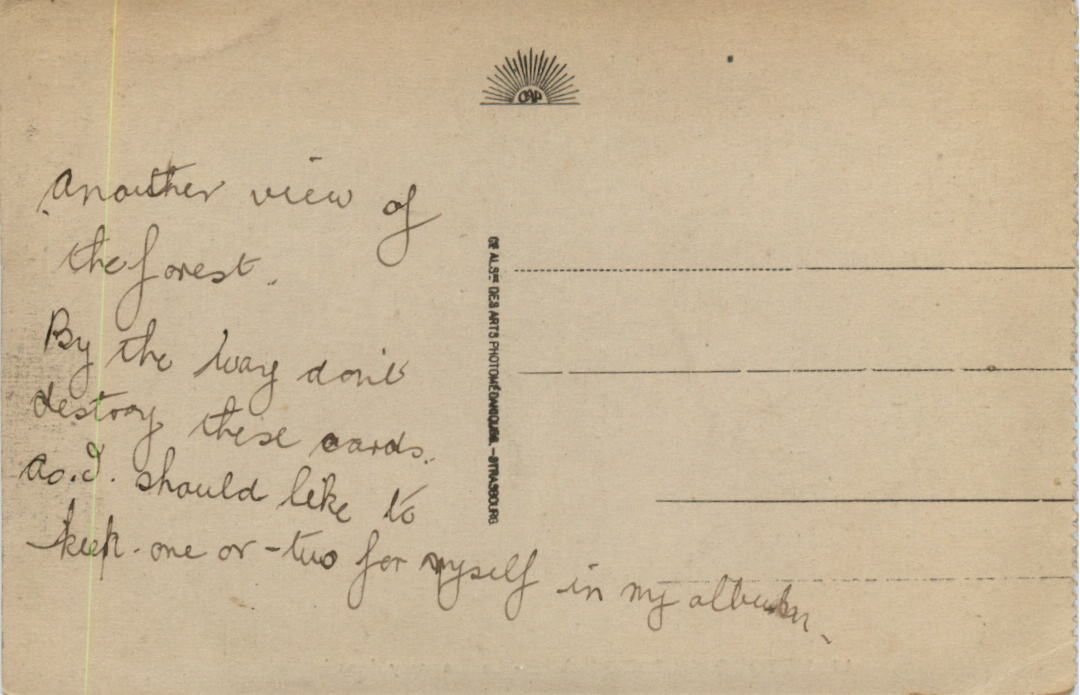 CAP
Another view of
the forest.
By the way don't
destroy these cards.
as. I. should like to
keep. one or - two for myself in my album.
CIE ALSNE DES ARTS PHOTOMÉCANIQUES. - STRASBOURG